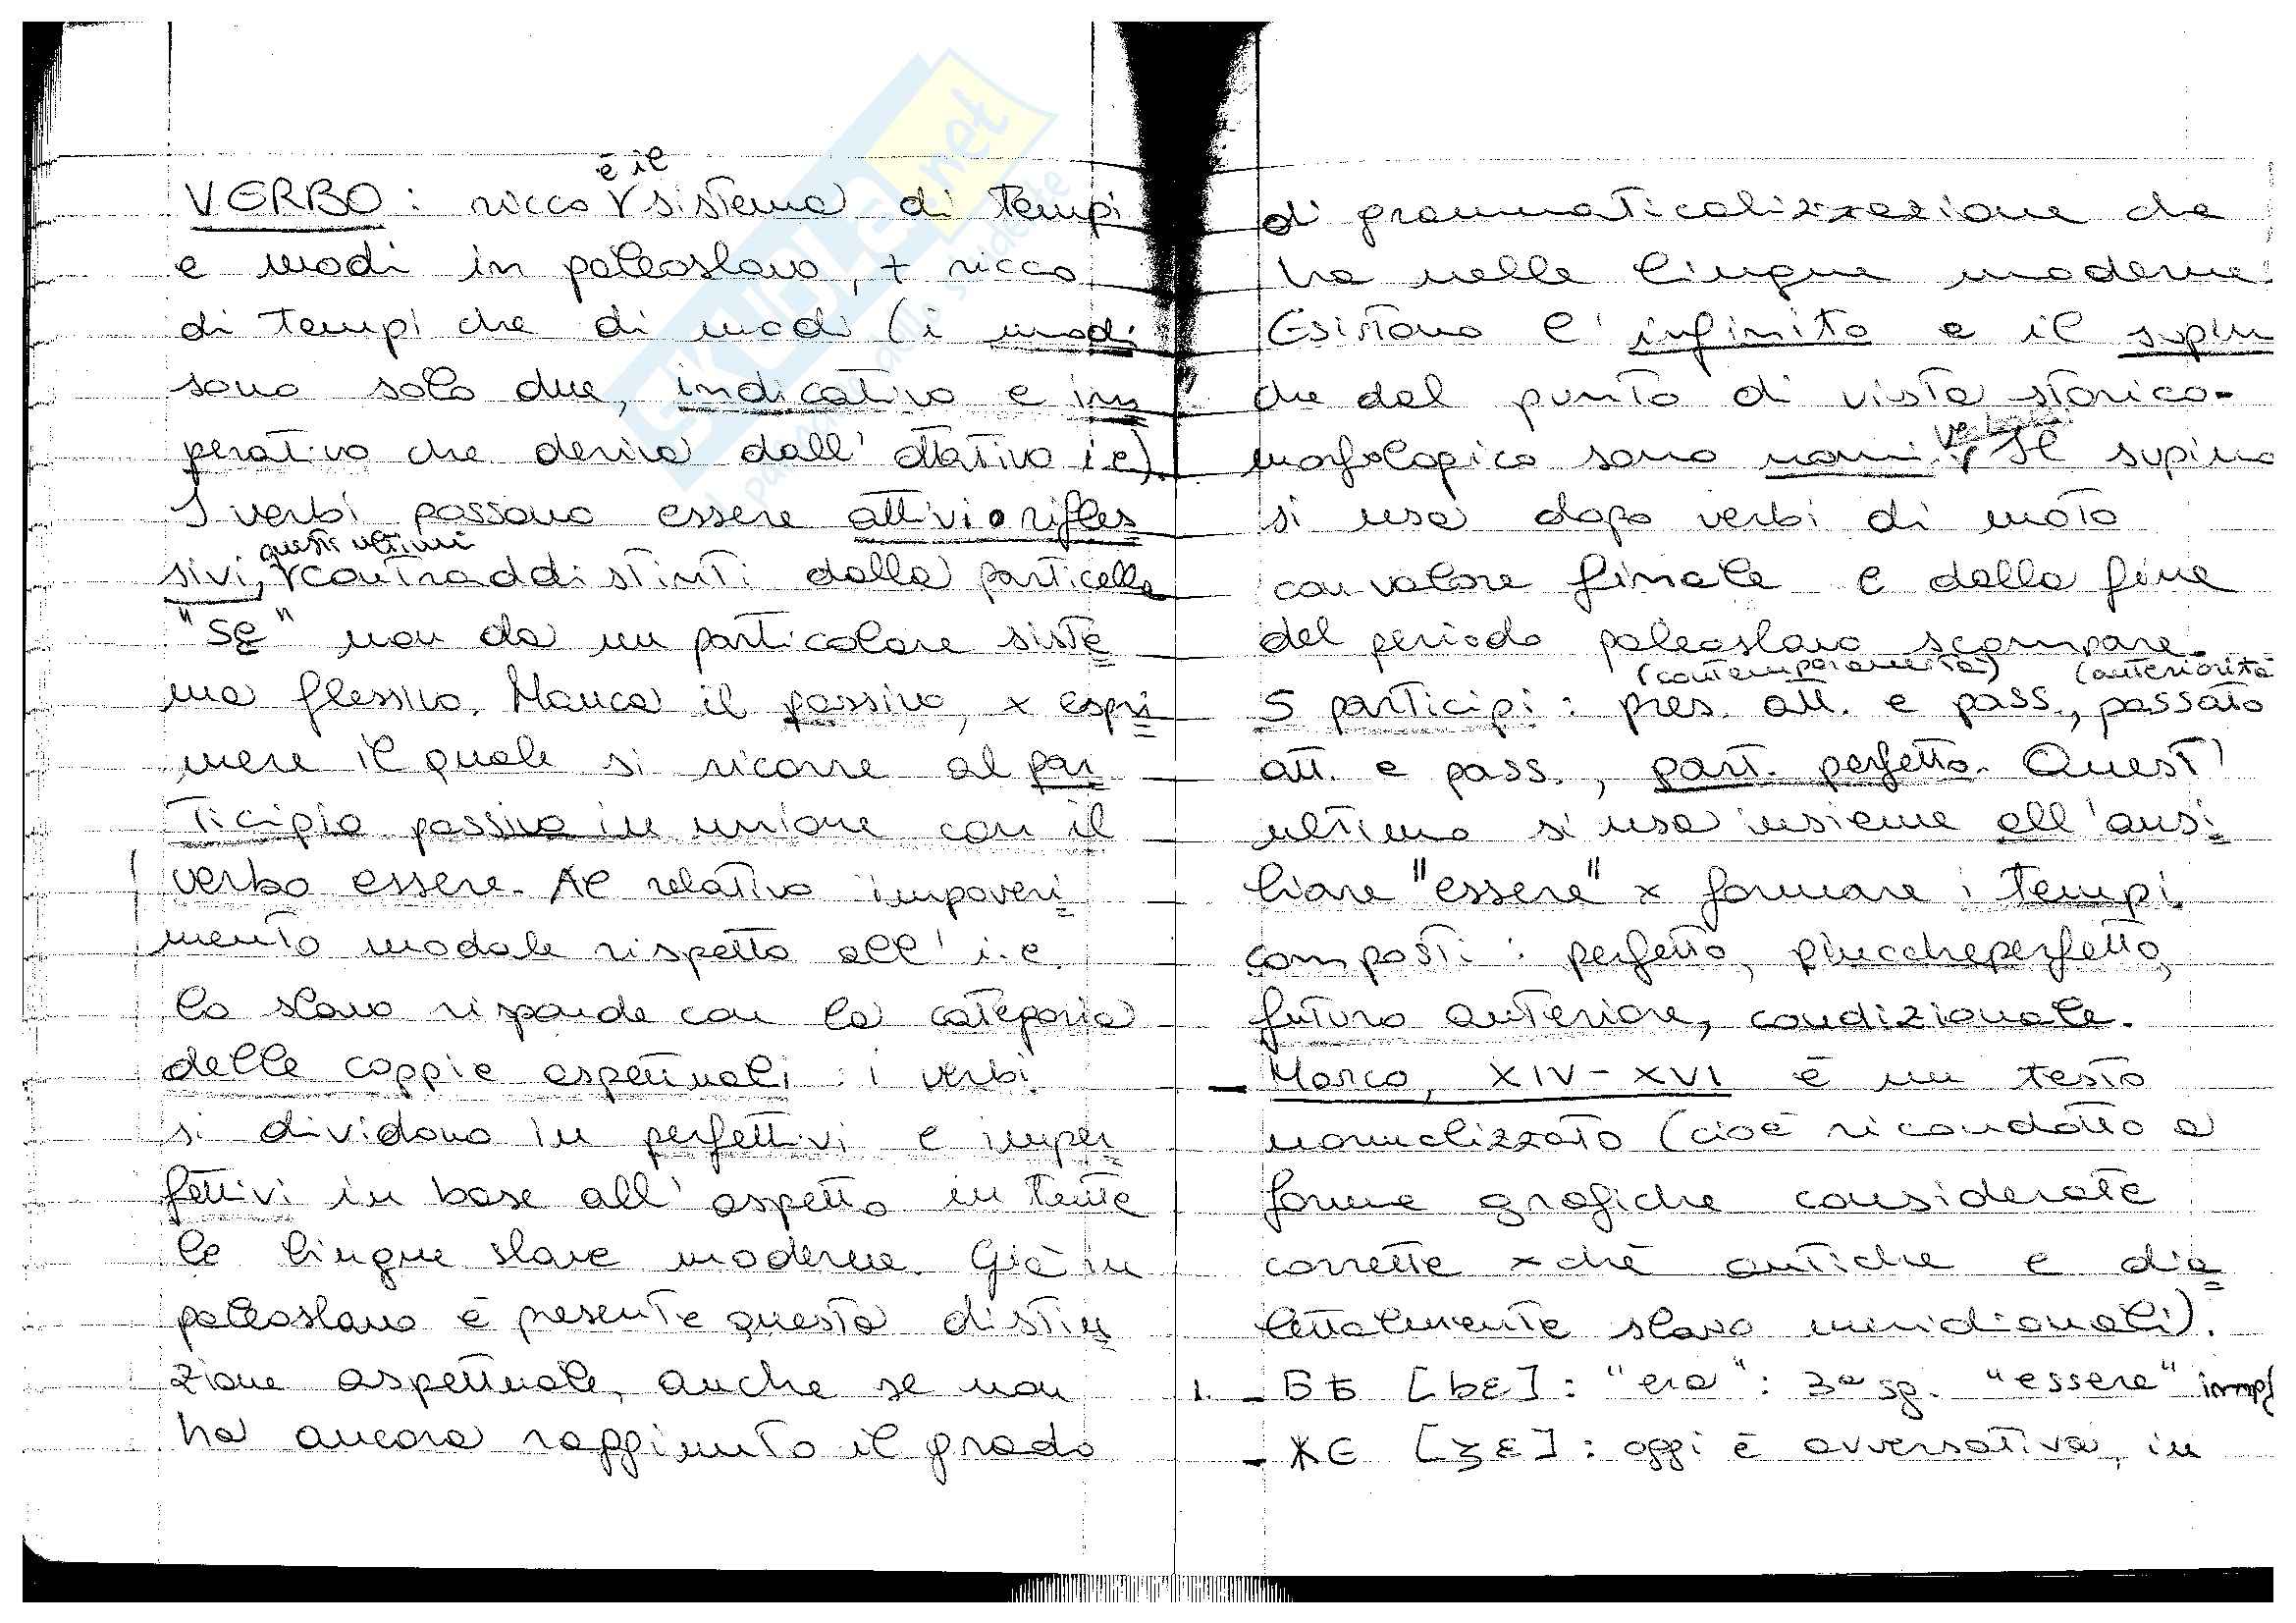 VERBO : ricco è il sistema di tempi
e modi in paleoslavo, + ricco
di tempi che di modi (i modi
sono solo due, indicativo e im
perativo che deriva dall'ottativo i.e).
I verbi possono essere attivi o rifles
sivi, questi ultimi contraddistinti dalla particella
"sę" non da un particolare siste
ma flessivo. Manca il passivo, x espri
mere il quale si ricorre al par
ticipio passivo in unione con il
verbo essere. Al relativo impoveri
mento modale rispetto all'i.e.
lo slavo risponde con la categoria
delle coppie aspettuali : i verbi
si dividono in perfettivi e imper
fettivi in base all'aspetto in tutte
le lingue slave moderne. Già in
paleoslavo è presente questa distin
zione aspettuale, anche se non
ha ancora raggiunto il grado
di grammaticalizzazione che
ha nelle lingue moderne.
Esistono l'infinito e il supin
che dal punto di vista storico-
morfologico sono nomi verbali. Il supino
si usa dopo verbi di moto
con valore finale e dalla fine
del periodo paleoslavo scompare.
(contemporaneità) (anteriorità
5 participi : pres. att. e pass., passato
att. e pass., part. perfetto. Quest'
ultimo si usa insieme all'ausi
liare "essere" x formare i tempi
composti : perfetto, piuccheperfetto,
futuro anteriore, condizionale.
- Marco, XIV-XVI è un testo
normalizzato (cioè ricondotto a
forme grafiche considerate
corrette xchè antiche e dia
lettalmente slavo meridionali).
1. - БѢ [bɛ] : "era" : 3ª sg. "essere" impf
- ЖЕ [ʒɛ] : oggi è avversativa, in
SKUOLA.net